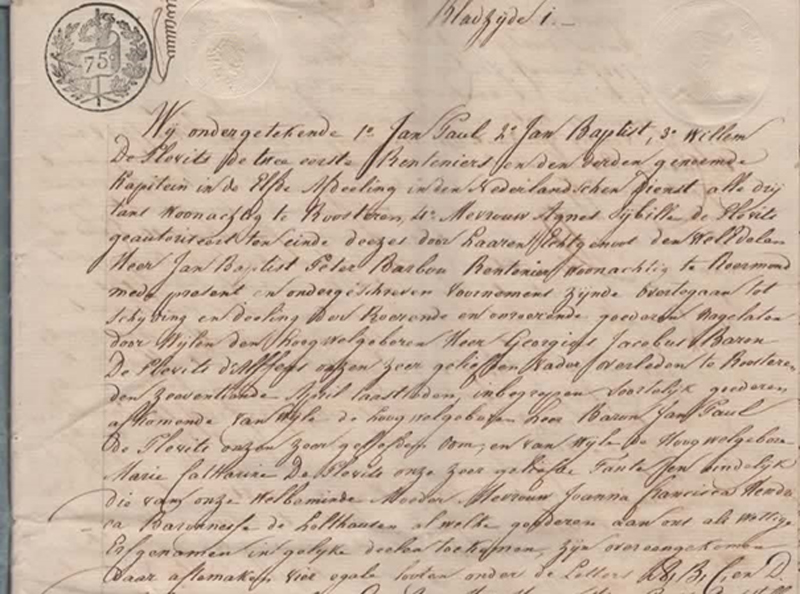 75
Bladzijde 1.
Wij ondergetekende 1º Jan Paul 2º Jan Baptist, 3º Willem
De Plevits de twee eerste Renteniers en den derden genoemde
Kapitein in de Elfde Afdeeling in den Nederlandschen Dienst alle drij
woonachtig te Roosteren, 4º Mevrouw Agnes Sijbille de Plevits
geautoriseert ten einde deezes door haaren Echtgenoot den WelEdelen
Heer Jan Baptist Peter Barbou Rentenier woonachtig te Roermond
mede present en ondergeschreven voornemens zijnde overtegaan tot
en deeling der Roerende en onroerende goederen nagelaten
door Wijlen den hoog welgeboren Heer Georgius Jacobus Baron
De Plevits onzen zeer geliefden Vader overleden te Roosteren
den April laastleden, inbegrepen goederen
afkomende van Wijle de hoog welgeboren heer Baron Jan Paul
De Plevits onzen zeer geliefden Oom, en van Wijle de Hoog welgebore
Marie Catharine De Plevits onze zeer geliefde Tante en eindelijk
die van onze Welbeminde Moeder Mevrouw Joanna Francisca Hendri
ca Baronnesse de Holthausen al welke goederen aan ons als Wettige
Erfgenamen in gelijke deelen toekomen, zijn overeengekomen
daar aftemaken vier egale looten onder de Letters A, B, C, en D.